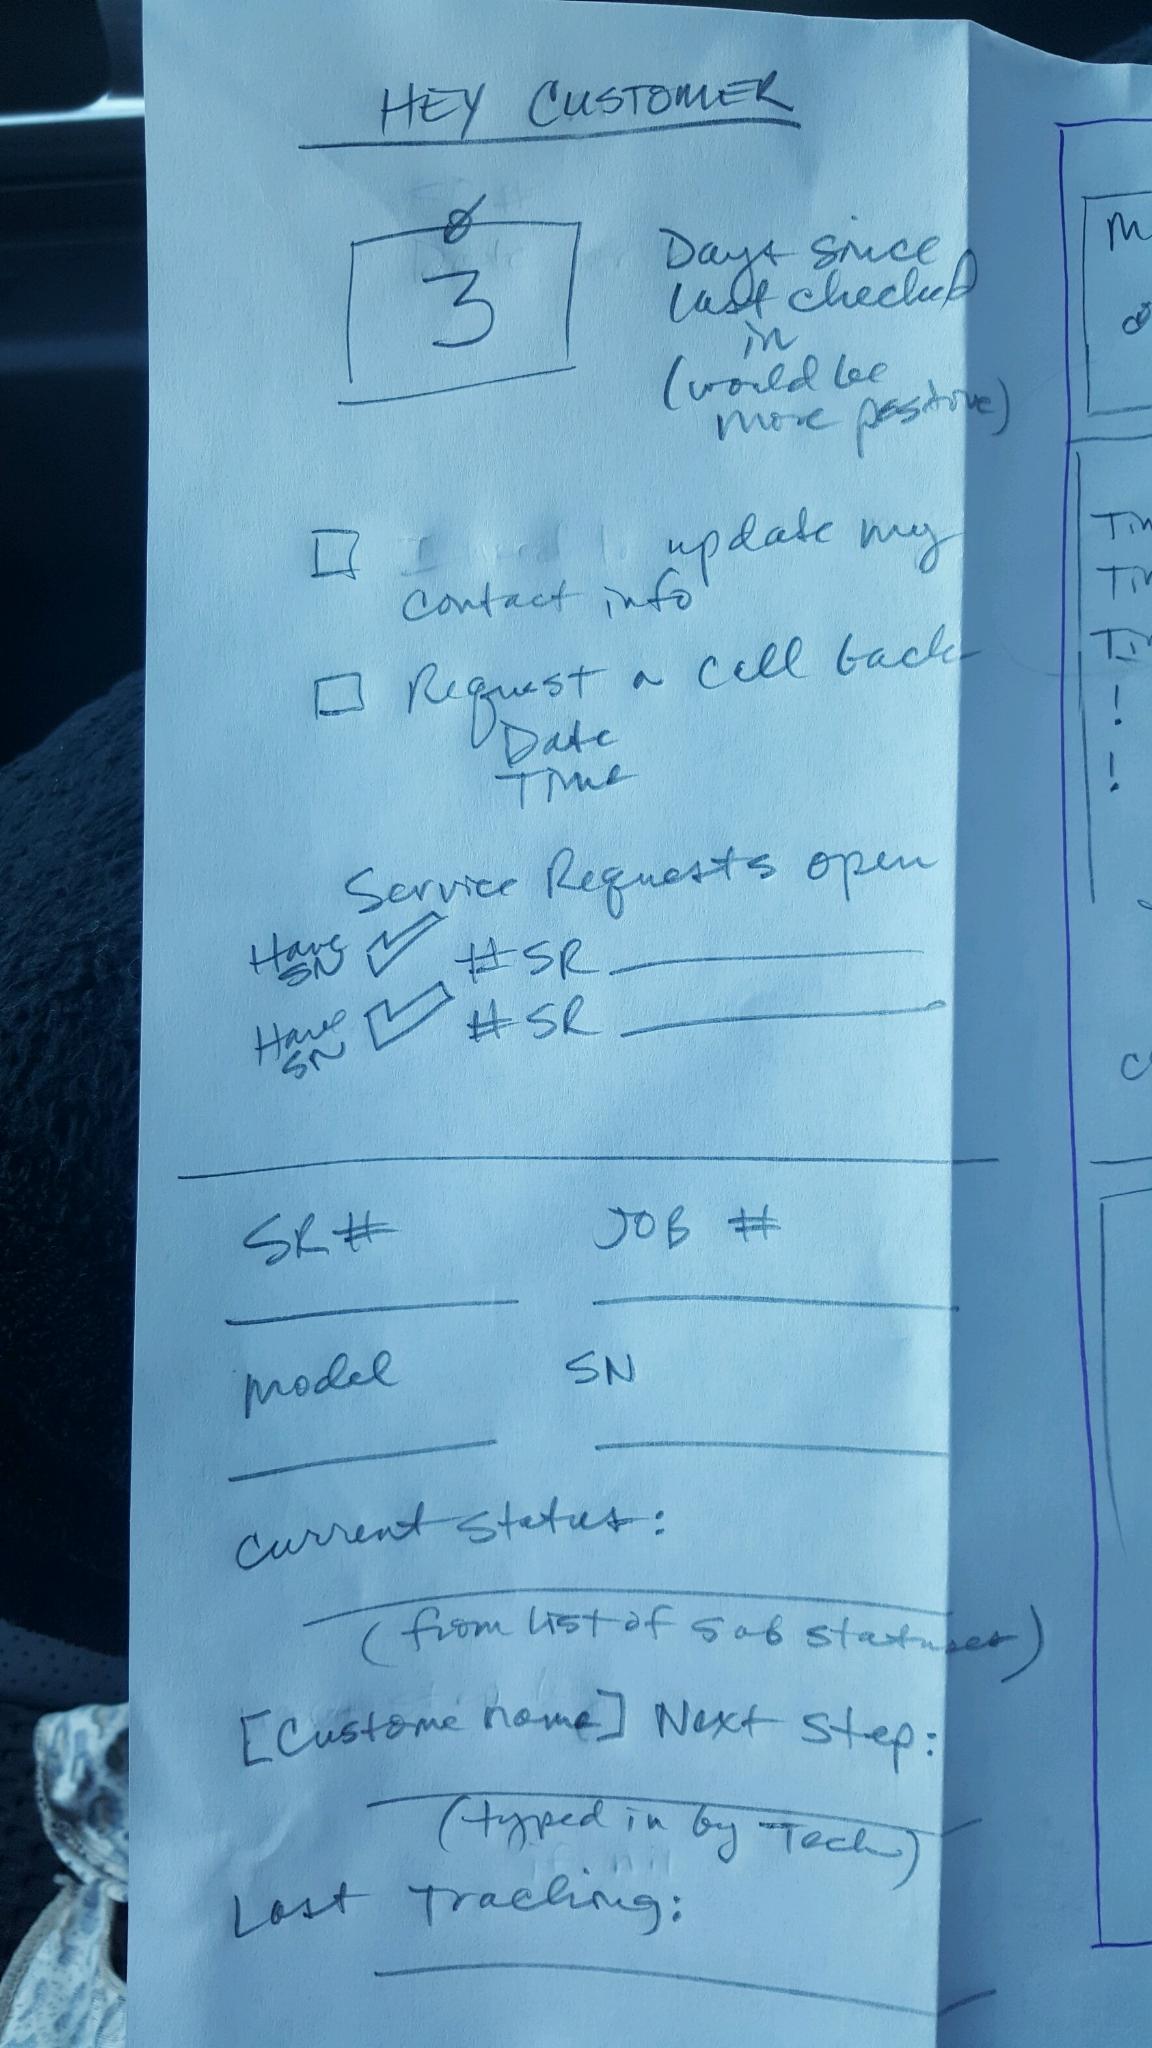 HEY CUSTOMER
3
Days since
last checked
in
(would be
more positive)
update my
contact info
Request a call back
Date
Time
Service Requests open
Have
SN
# SR
Have
SN
# SR
SR # JOB #
Model SN
Current Status:
(from list of sub statuses)
[Custome name] Next Step:
(typed in by Tech)
Last Tracking:
M
Tim
Tim
Tim
!
!
C